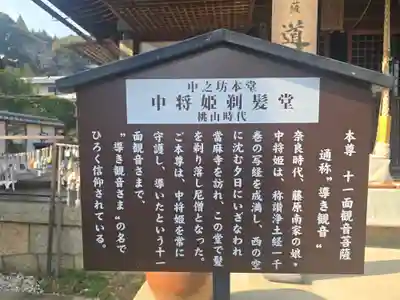 道
中之坊本堂
中将姫剃髪堂
桃山時代
本尊 十一面観音菩薩
通称〝導き観音〟
奈良時代、藤原南家の娘・
中将姫は、称讃浄土経一千
巻の写経を成満し、西の空
に沈む夕日にいざなわれ
當麻寺を訪れ、この堂で髪
を剃り落し尼僧となった。
ご本尊は、中将姫を常に
守護し、導いたという十一
面観音さまで、
〝導き観音さま〟の名で
ひろく信仰されている。